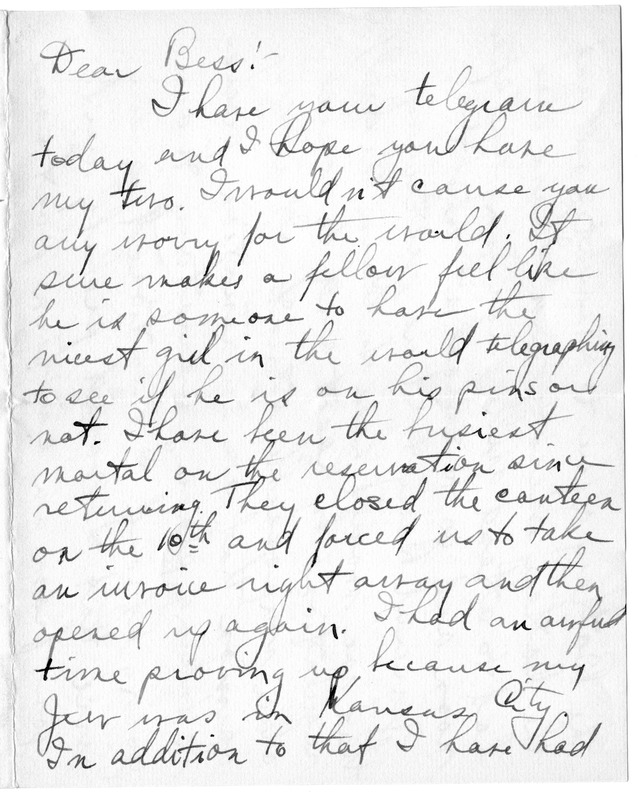 Dear Bess:-
I have your telegram
today and I hope you have
my two. I wouldn't cause you
any worry for the world. It
sure makes a fellow feel like
he is someone to have the
nicest girl in the world telegraphing
to see if he is on his pins or
not. I have been the busiest
mortal on the reservation since
returning. They closed the canteen
on the 10th and forced us to take
an invoice right away and then
opened up again. I had an awful
time proving up because my
Jew was in Kansas City.
In addition to that I have had